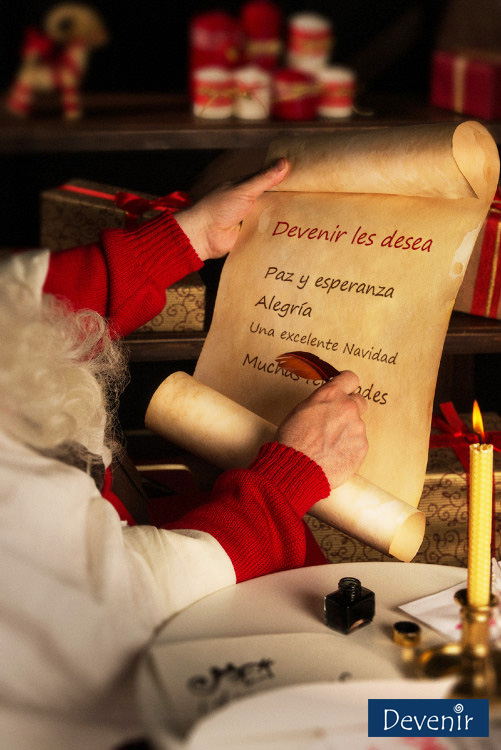 Devenir les desea
Paz y esperanza
Alegría
Una excelente Navidad
Muchas
Devenir